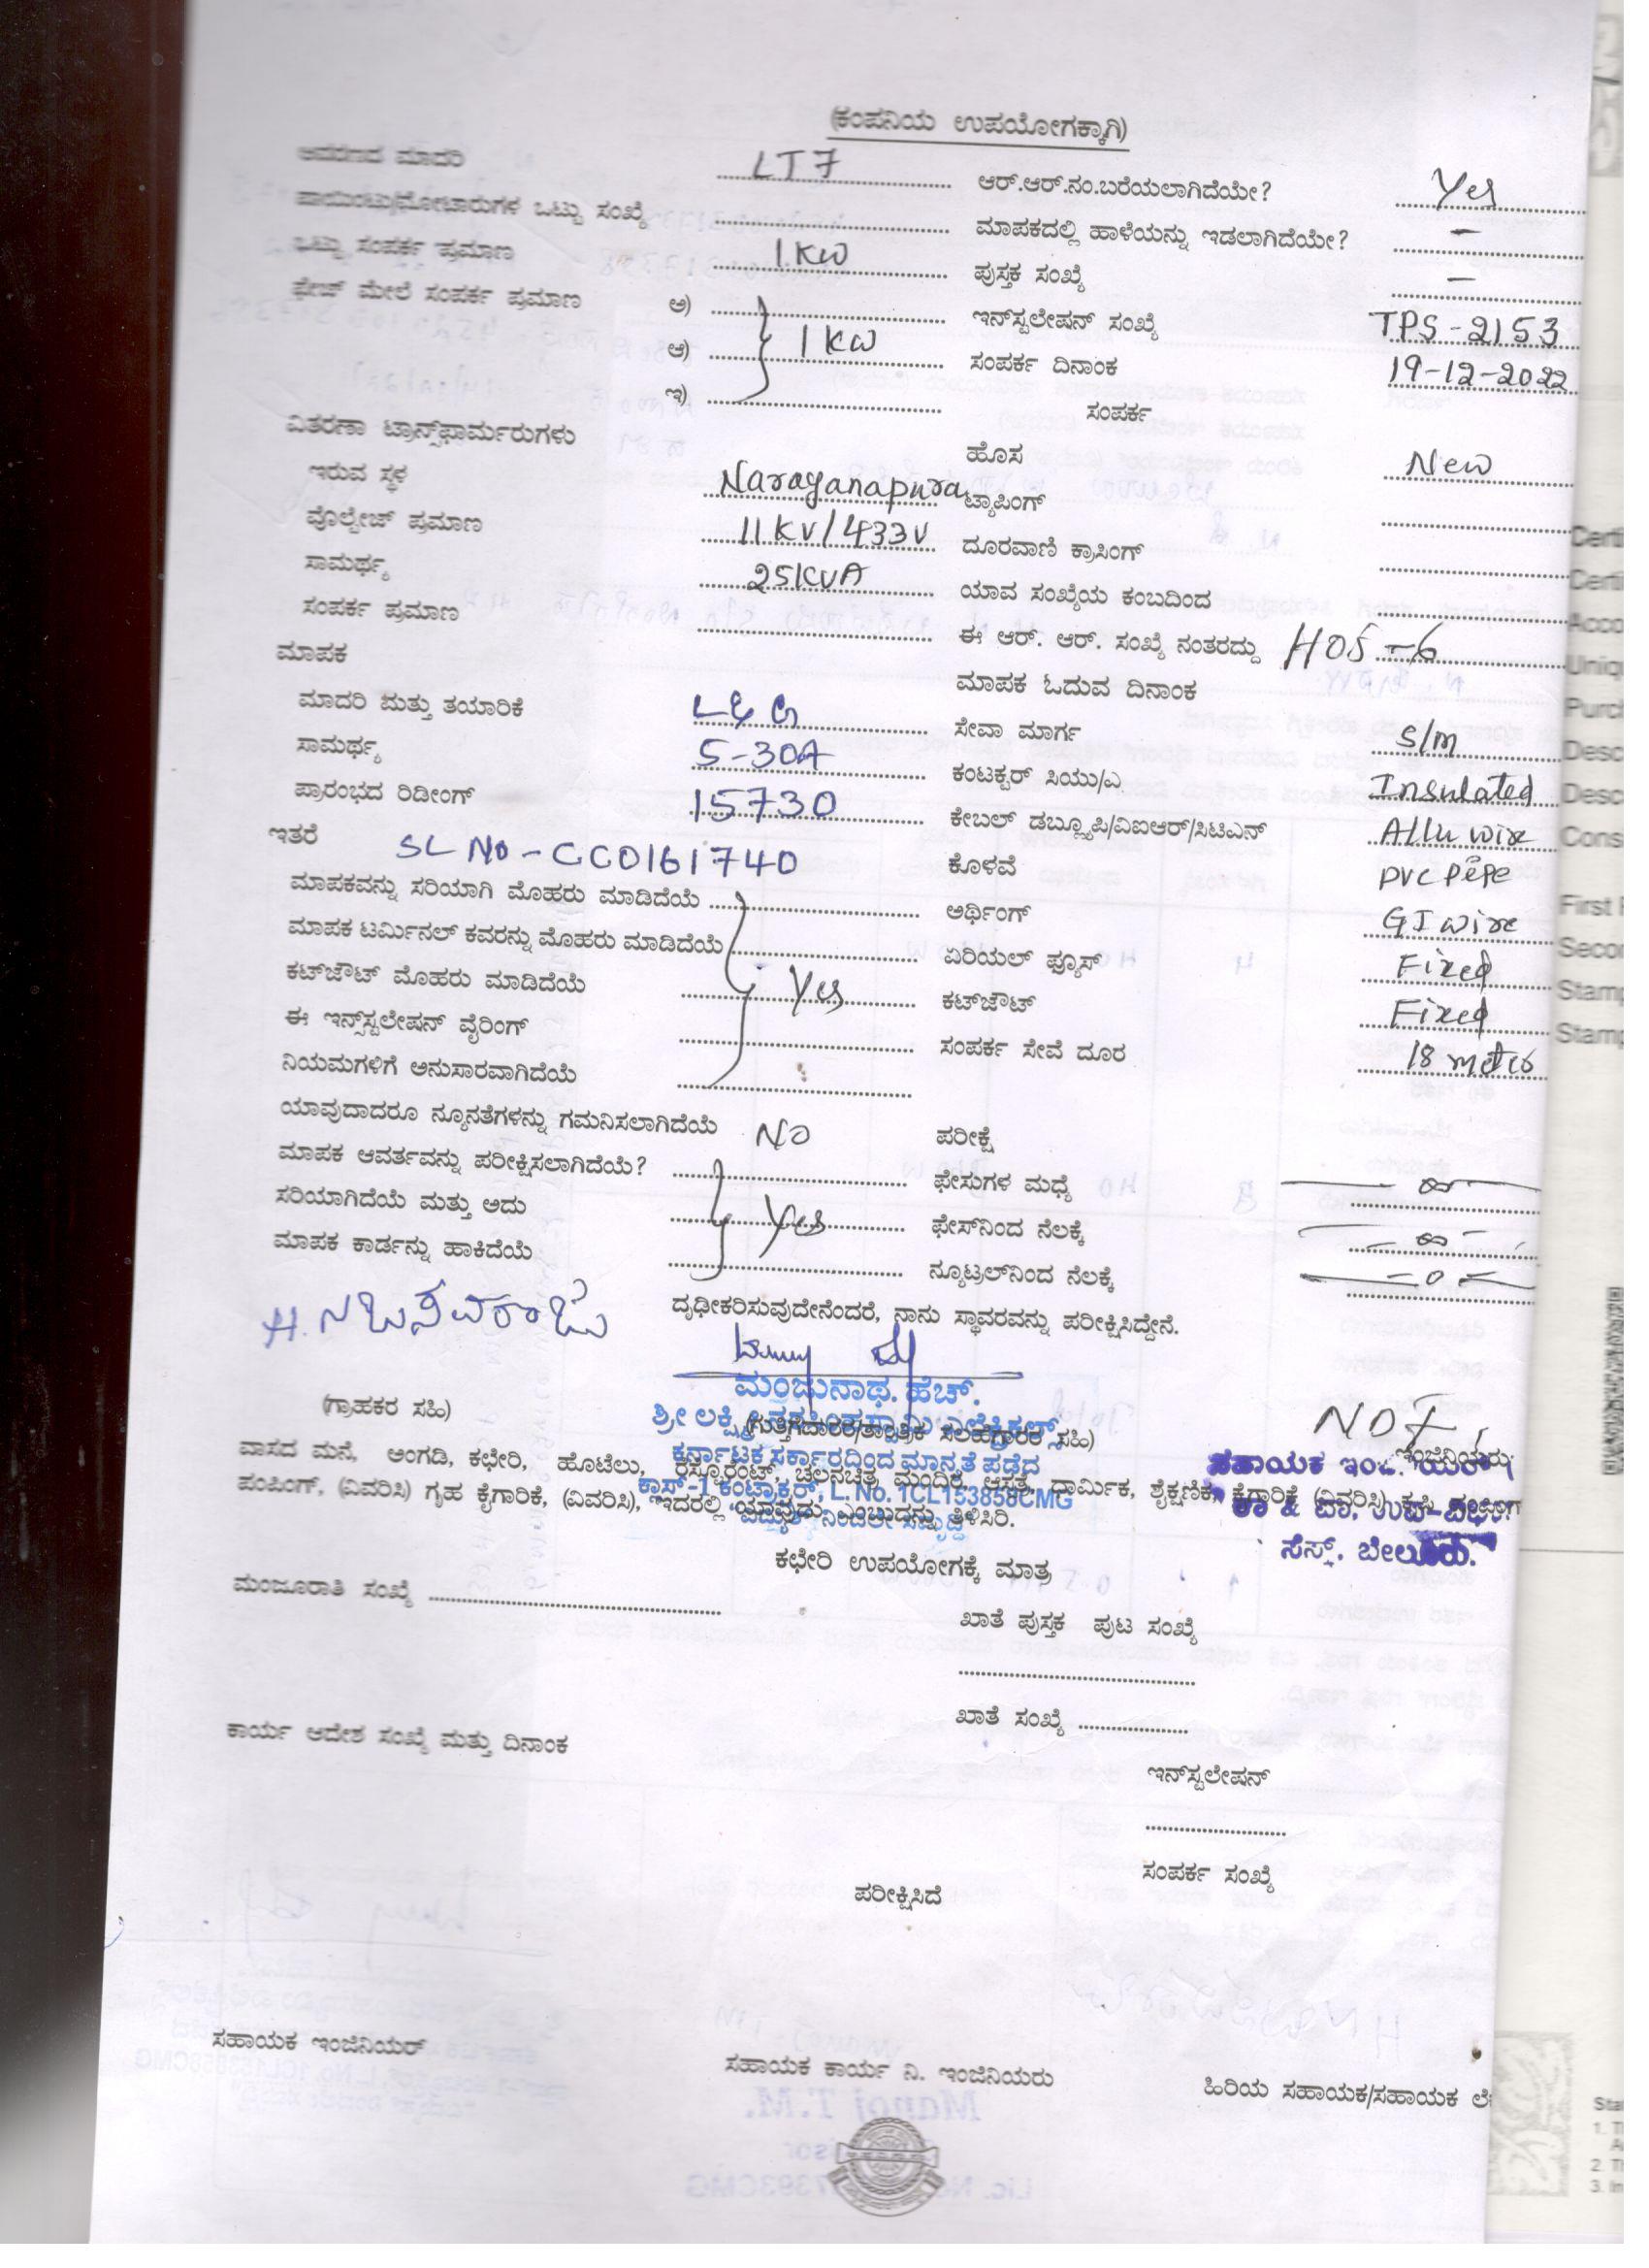 (ಕಂಪನಿಯ ಉಪಯೋಗಕ್ಕಾಗಿ)
ಆವರಣದ ಮಾದರಿ LT7 ಆರ್.ಆರ್.ನಂ.ಬರೆಯಲಾಗಿದೆಯೇ? Yes
ಪಾಯಿಂಟು/ಮೋಟಾರುಗಳ ಒಟ್ಟು ಸಂಖ್ಯೆ ಮಾಪಕದಲ್ಲಿ ಹಾಳೆಯನ್ನು ಇಡಲಾಗಿದೆಯೇ? -
ಒಟ್ಟು ಸಂಪರ್ಕ ಪ್ರಮಾಣ 1KW ಪುಸ್ತಕ ಸಂಖ್ಯೆ -
ಫೇಜ್ ಮೇಲೆ ಸಂಪರ್ಕ ಪ್ರಮಾಣ ಅ) ಇನ್‌ಸ್ಟಲೇಷನ್ ಸಂಖ್ಯೆ TPS-2153
ಆ) 1KW ಸಂಪರ್ಕ ದಿನಾಂಕ 19-12-2022
ಇ) ಸಂಪರ್ಕ
ವಿತರಣಾ ಟ್ರಾನ್ಸ್‌ಫಾರ್ಮರುಗಳು ಹೊಸ New
ಇರುವ ಸ್ಥಳ Narayanapura ಟ್ಯಾಪಿಂಗ್
ವೊಲ್ಟೇಜ್ ಪ್ರಮಾಣ 11KV/433V ದೂರವಾಣಿ ಕ್ರಾಸಿಂಗ್
ಸಾಮರ್ಥ್ಯ 25KVA ಯಾವ ಸಂಖ್ಯೆಯ ಕಂಬದಿಂದ
ಸಂಪರ್ಕ ಪ್ರಮಾಣ ಈ ಆರ್. ಆರ್. ಸಂಖ್ಯೆ ನಂತರದ್ದು H05-6
ಮಾಪಕ ಮಾಪಕ ಓದುವ ದಿನಾಂಕ
ಮಾದರಿ ಮತ್ತು ತಯಾರಿಕೆ L&G ಸೇವಾ ಮಾರ್ಗ S/m
ಸಾಮರ್ಥ್ಯ 5-30A ಕಂಟಕ್ಟರ್ ಸಿಯು/ಎ Insulated
ಪ್ರಾರಂಭದ ರಿಡೀಂಗ್ 15730 ಕೇಬಲ್ ಡಬ್ಲ್ಯೂಪಿ/ವಿಐಆರ್/ಸಿಟಿಎಸ್ Allu wire
ಇತರೆ SL NO-CC0161740 ಕೊಳವೆ PVC Pipe
ಮಾಪಕವನ್ನು ಸರಿಯಾಗಿ ಮೊಹರು ಮಾಡಿದೆಯೆ ಅರ್ಥಿಂಗ್ GI wire
ಮಾಪಕ ಟರ್ಮಿನಲ್ ಕವರನ್ನು ಮೊಹರು ಮಾಡಿದೆಯೆ ಏರಿಯಲ್ ಫ್ಯೂಸ್ Fixed
ಕಟ್‌ಔಟ್ ಮೊಹರು ಮಾಡಿದೆಯೆ Yes ಕಟ್‌ಔಟ್ Fixed
ಈ ಇನ್ಸ್‌ಸ್ಟಲೇಷನ್ ವೈರಿಂಗ್ ಸಂಪರ್ಕ ಸೇವೆ ದೂರ 18
ನಿಯಮಗಳಿಗೆ ಅನುಸಾರವಾಗಿದೆಯೆ
ಯಾವುದಾದರೂ ನ್ಯೂನತೆಗಳನ್ನು ಗಮನಿಸಲಾಗಿದೆಯೆ NO ಪರೀಕ್ಷೆ
ಮಾಪಕ ಆವರ್ತವನ್ನು ಪರೀಕ್ಷಿಸಲಾಗಿದೆಯೆ? ಫೇಸುಗಳ ಮಧ್ಯೆ
ಸರಿಯಾಗಿದೆಯೆ ಮತ್ತು ಅದು Yes ಫೇಸ್‌ನಿಂದ ನೆಲಕ್ಕೆ
ಮಾಪಕ ಕಾರ್ಡನ್ನು ಹಾಕಿದೆಯೆ ನ್ಯೂಟ್ರಲ್‌ನಿಂದ ನೆಲಕ್ಕೆ
ದೃಢೀಕರಿಸುವುದೇನೆಂದರೆ, ನಾನು ಸ್ಥಾವರವನ್ನು ಪರೀಕ್ಷಿಸಿದ್ದೇನೆ.
ಮಂಜುನಾಥ. ಹೆಚ್.
(ಗ್ರಾಹಕರ ಸಹಿ) ಶ್ರೀ ಲಕ್ಷ್ಮೀ ನರಸಿಂಹಸ್ವಾಮಿ ಎಲೆಕ್ಟ್ರಿಕಲ್ಸ್
(ಗುತ್ತಿಗೆದಾರರ/ತಾಂತ್ರಿಕ ಸಲಹೆಗಾರರ ಸಹಿ) ಇಂಜಿನಿಯರು
ಕರ್ನಾಟಕ ಸರ್ಕಾರದಿಂದ ಮಾನ್ಯತೆ ಪಡೆದ
ವಾಸದ ಮನೆ, ಅಂಗಡಿ, ಕಛೇರಿ, ಹೊಟೆಲು, ರೆಸ್ಟೂರೆಂಟ್, ಚಲನಚಿತ್ರ ಮಂದಿರ, ಆಸ್ಪತ್ರೆ, ಧಾರ್ಮಿಕ, ಶೈಕ್ಷಣಿಕ, ಕೈಗಾರಿಕೆ (ವಿವರಿಸಿ)
ಕ್ಲಾಸ್-1 ಕಂಟ್ರಾಕ್ಟರ್, L. No. 1CL153858CMG
ಪಂಪಿಂಗ್, (ವಿವರಿಸಿ) ಗೃಹ ಕೈಗಾರಿಕೆ, (ವಿವರಿಸಿ), ಇದರಲ್ಲಿ ಯಾವುದು ಎಂಬುದನ್ನು ತಿಳಿಸಿರಿ.
ಸೆಸ್ಕ್. ಬೇಲೂರು.
ಕಛೇರಿ ಉಪಯೋಗಕ್ಕೆ ಮಾತ್ರ
ಮಂಜೂರಾತಿ ಸಂಖ್ಯೆ ಖಾತೆ ಪುಸ್ತಕ ಪುಟ ಸಂಖ್ಯೆ
ಖಾತೆ ಸಂಖ್ಯೆ
ಕಾರ್ಯ ಆದೇಶ ಸಂಖ್ಯೆ ಮತ್ತು ದಿನಾಂಕ
ಇನ್‌ಸ್ಟಲೇಷನ್
ಸಂಪರ್ಕ ಸಂಖ್ಯೆ
ಪರೀಕ್ಷಿಸಿದೆ
ಸಹಾಯಕ ಇಂಜಿನಿಯರ್ ಸಹಾಯಕ ಕಾರ್ಯ ನಿ. ಇಂಜಿನಿಯರು ಹಿರಿಯ ಸಹಾಯಕ/ಸಹಾಯಕ